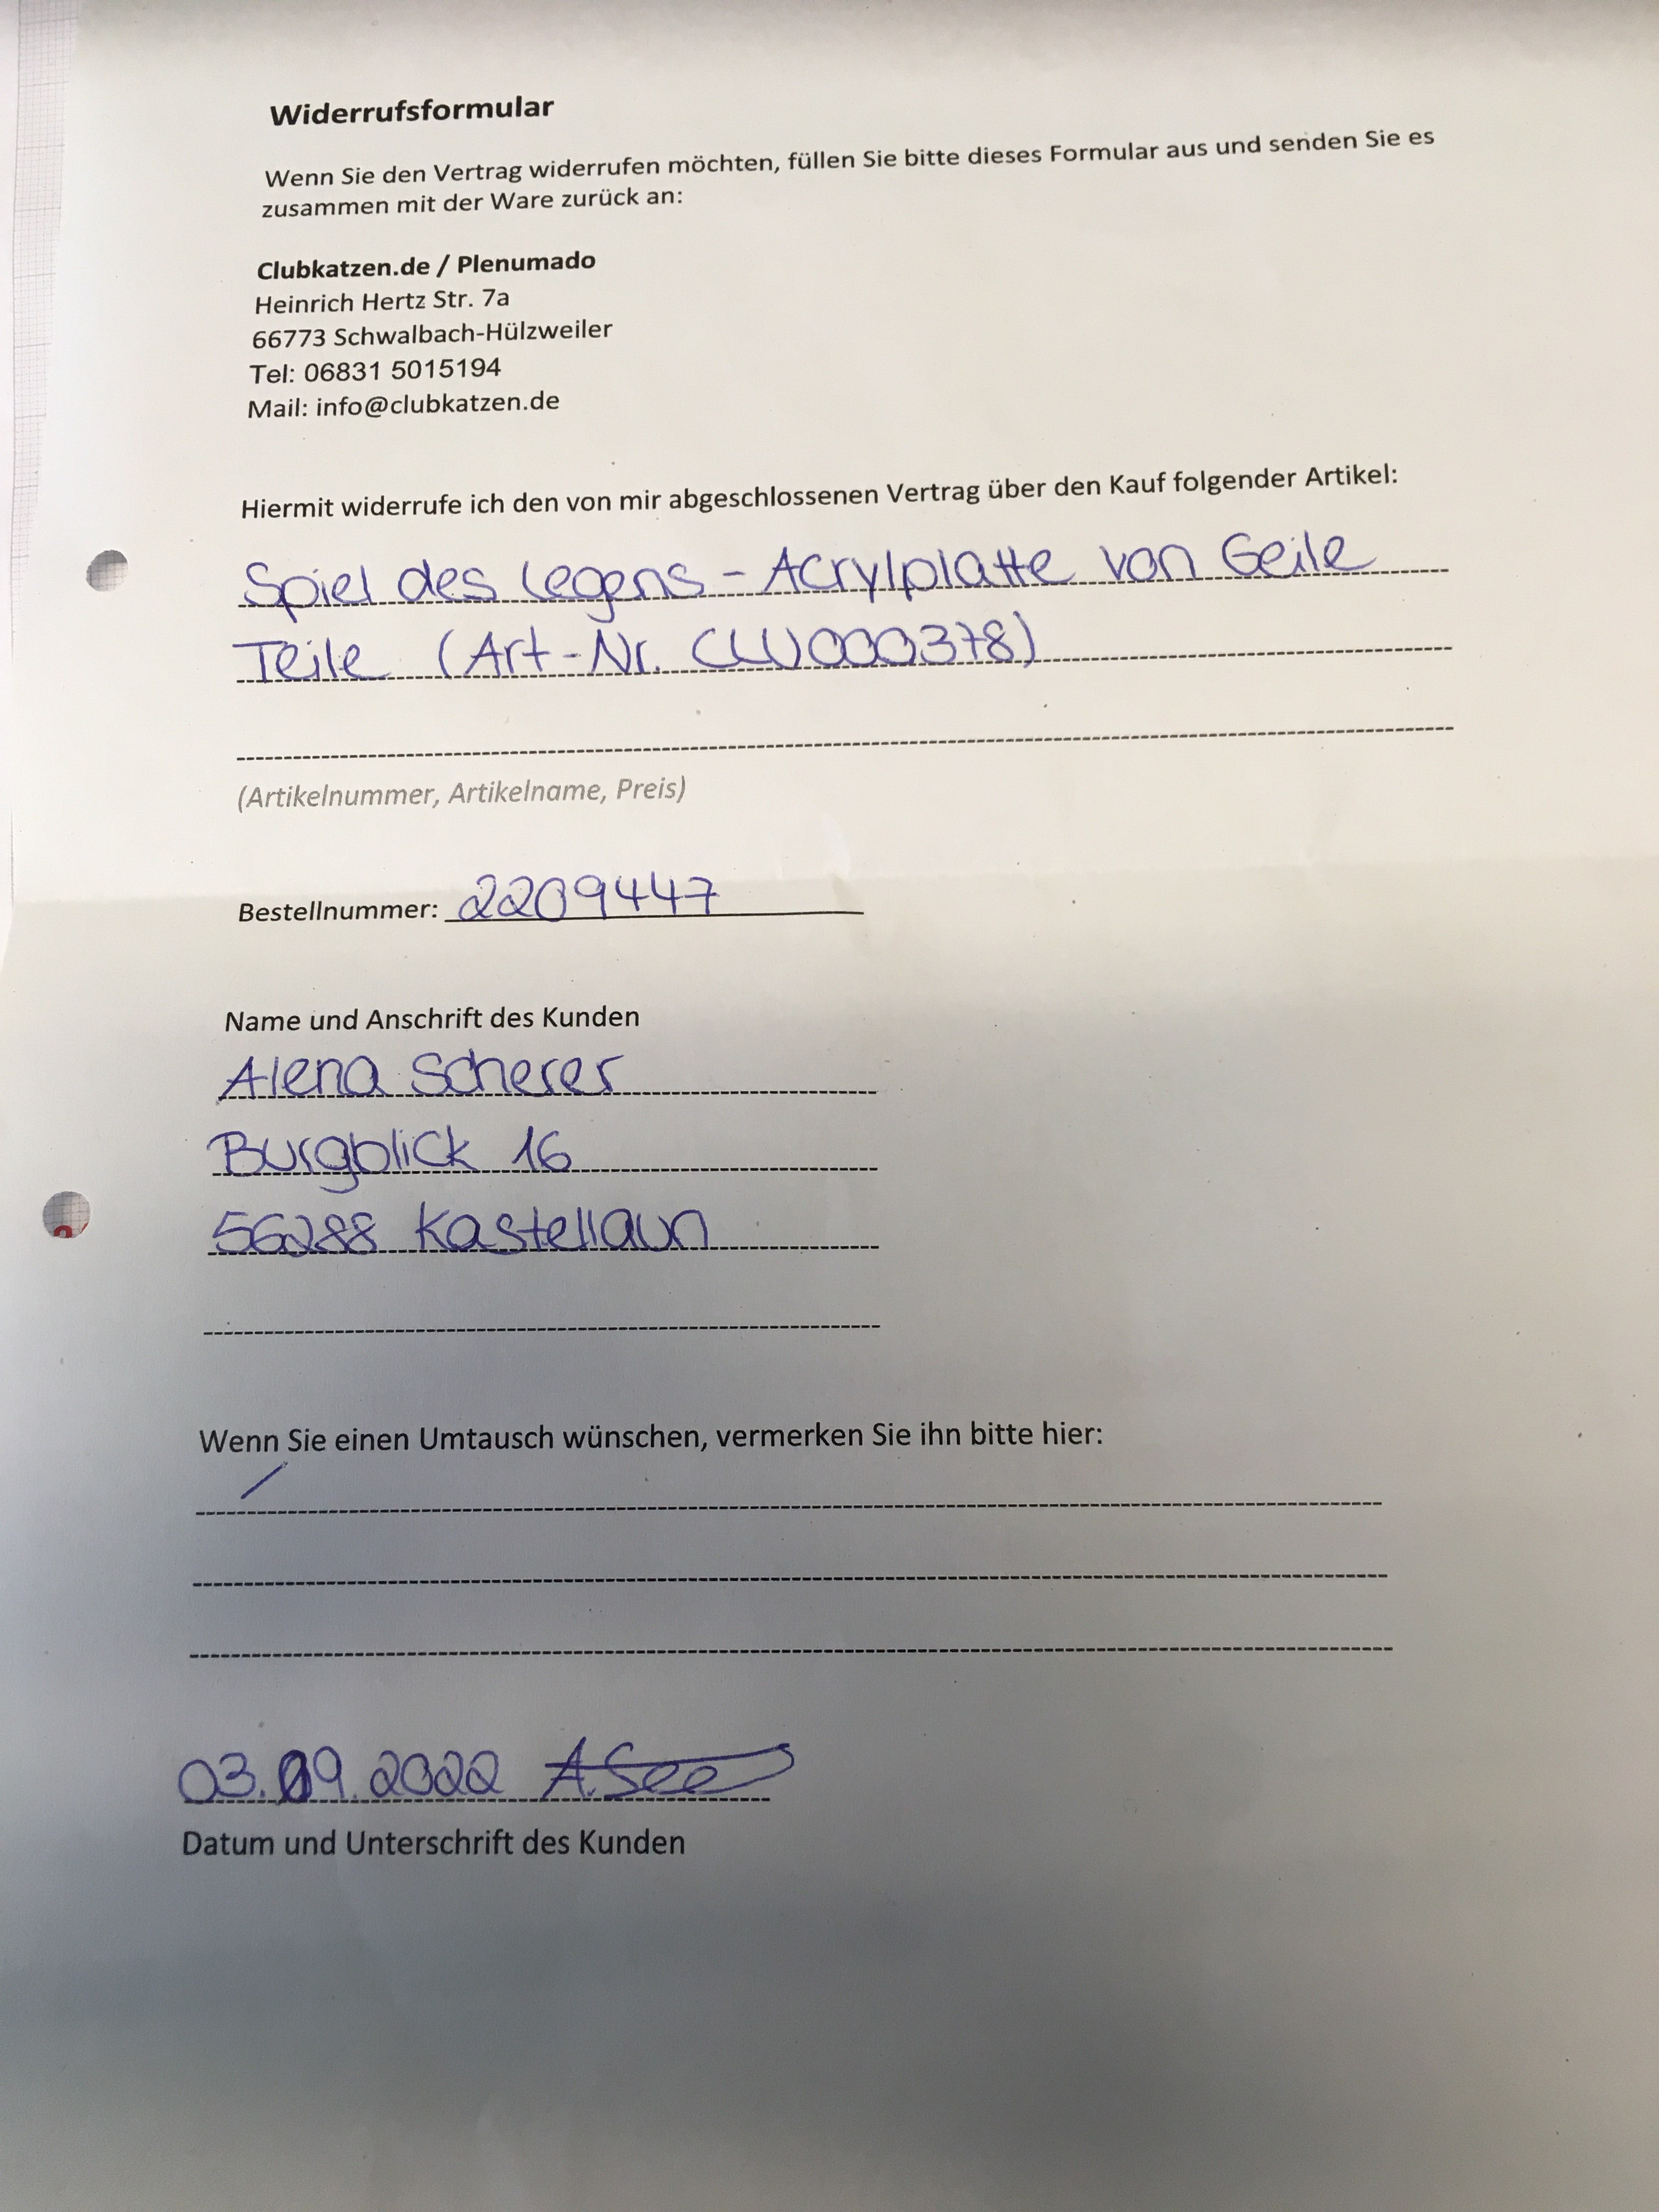 Widerrufsformular
Wenn Sie den Vertrag widerrufen möchten, füllen Sie bitte dieses Formular aus und senden Sie es
zusammen mit der Ware zurück an:
Clubkatzen.de / Plenumado
Heinrich Hertz Str. 7a
66773 Schwalbach-Hülzweiler
Tel: 06831 5015194
Mail: info@clubkatzen.de
Hiermit widerrufe ich den von mir abgeschlossenen Vertrag über den Kauf folgender Artikel:
Spiel des Legens - Acrylplatte von Geile
Teile (Art-Nr. CW000378)
(Artikelnummer, Artikelname, Preis)
Bestellnummer: 2209447
Name und Anschrift des Kunden
Alena Scherer
Burgblick 16
56288 Kastellaun
Wenn Sie einen Umtausch wünschen, vermerken Sie ihn bitte hier:
/
03.09.2022
Datum und Unterschrift des Kunden